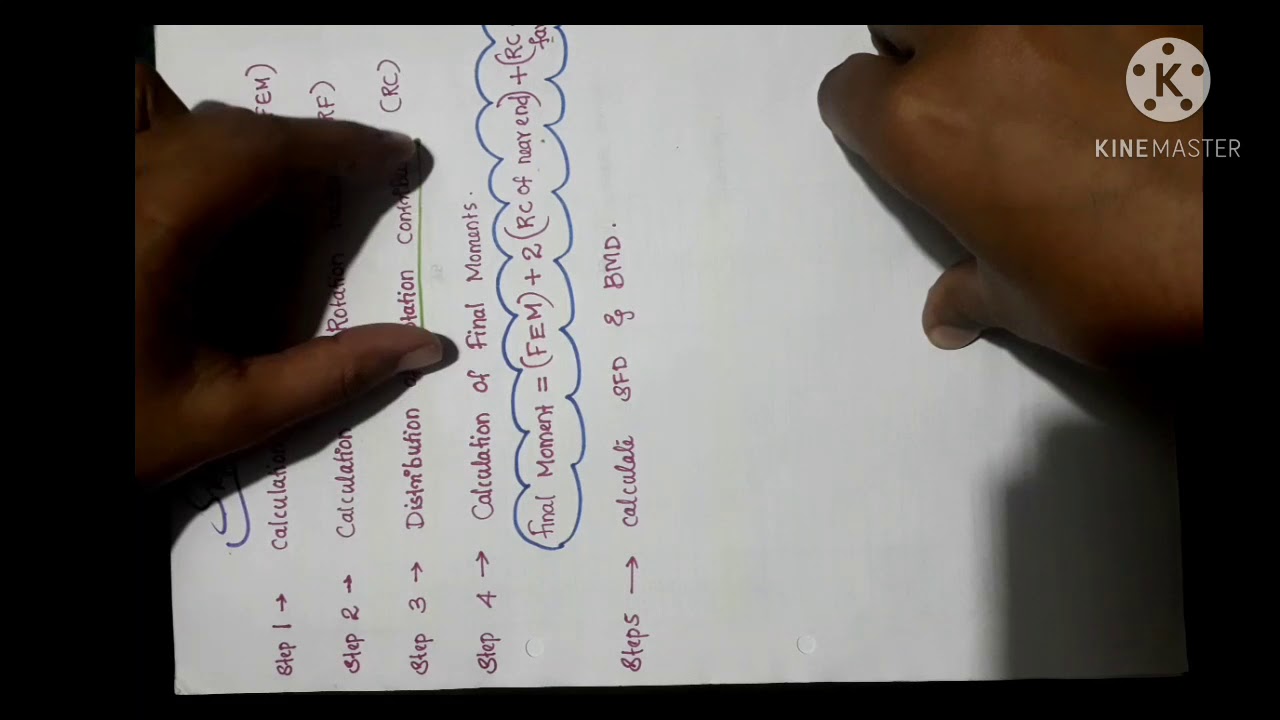 Step 1 → Calculation FEM)
Step 2 → Calculation Rotation RF)
Step 3 → Distribution tation (RC)
Step 4 → Calculation of Final Moments.
Final Moment = (FEM) + 2 (RC of near end) + (RC
far
Step5 → calculate SFD & BMD.
KINEMASTER